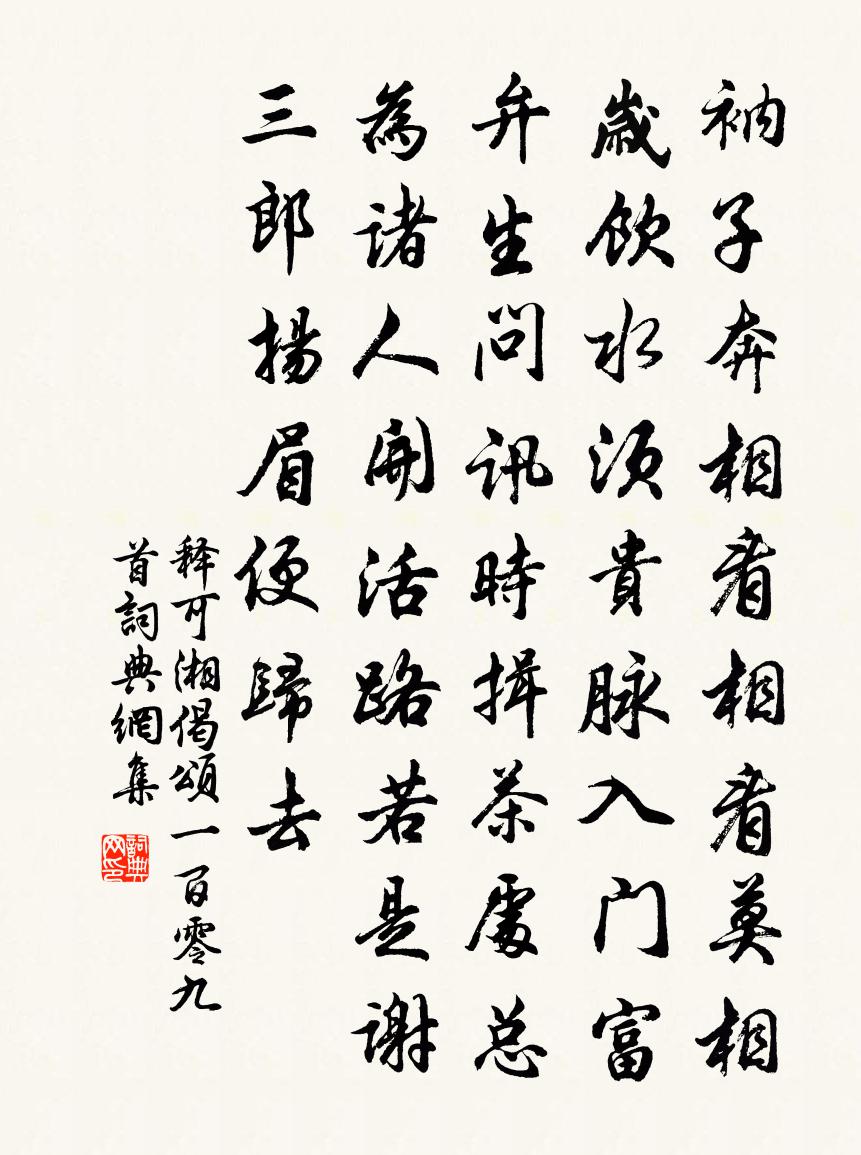 衲子奔相看相看莫相
歲飲水須貴脉入门富
弁生问訊時揖茶處总
為諸人開活路若是謝
三郎揚眉便歸去
释可湘偈頌一百零九
首詞典網集
詞典网印